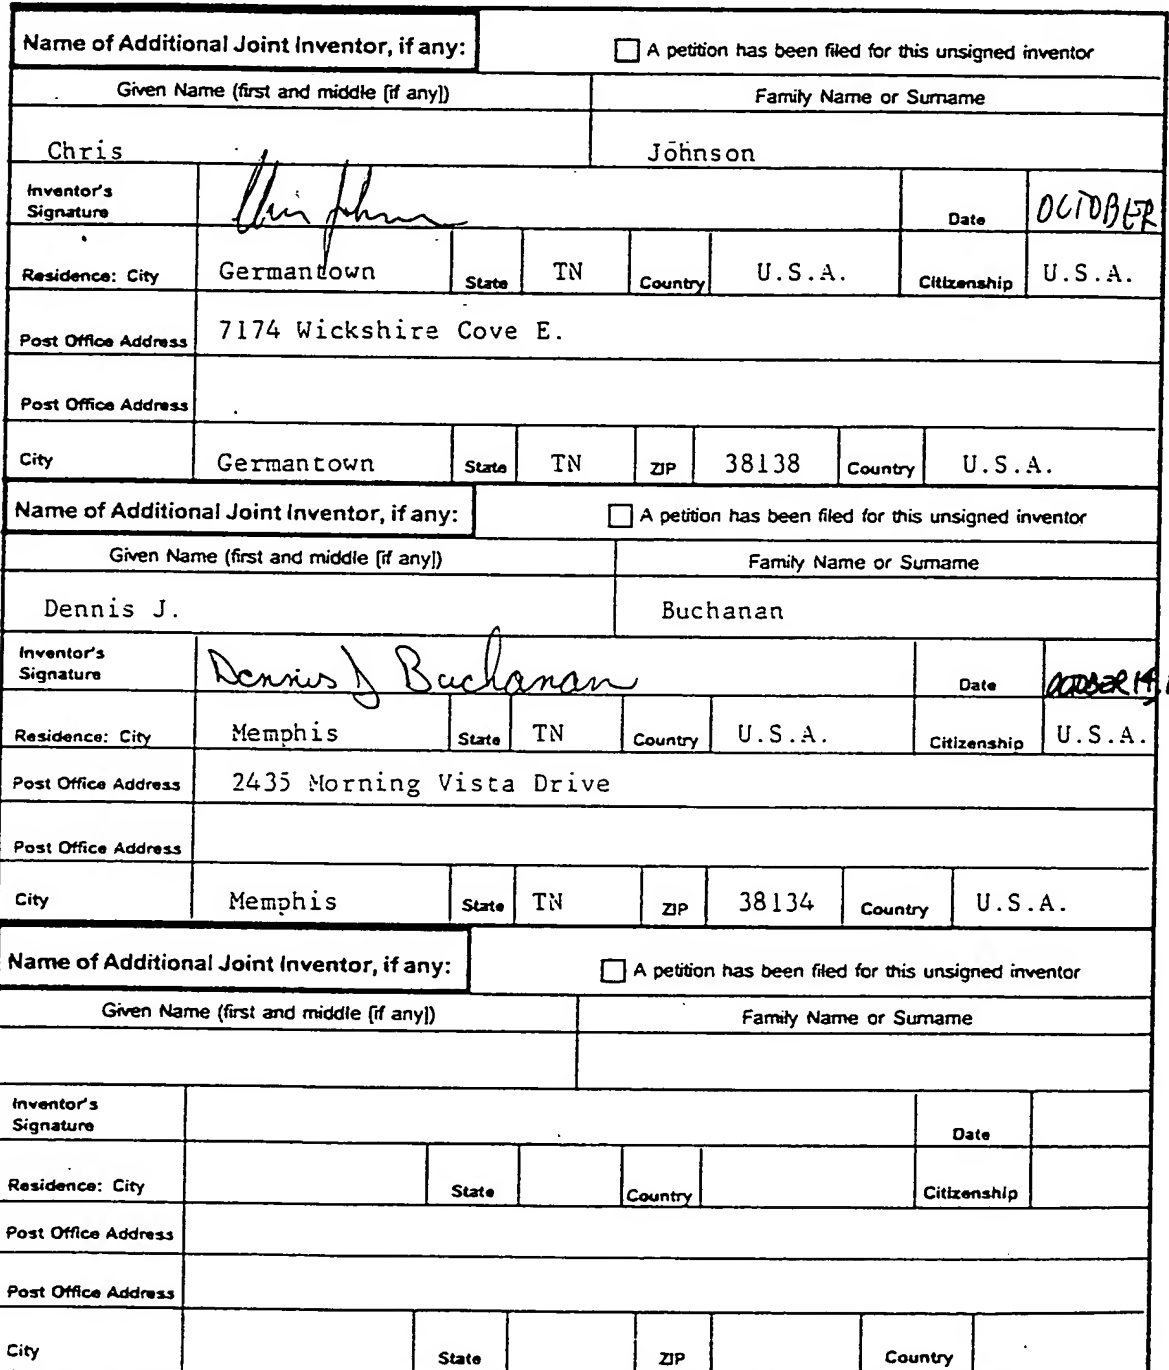 Name of Additional Joint Inventor, if any: A petition has been filed for this unsigned inventor
Given Name (first and middle [if any]) Family Name or Surname
Chris Johnson
Inventor's Signature Chris Johnson Date OCTOBER
Residence: City Germantown State TN Country U.S.A. Citizenship U.S.A.
Post Office Address 7174 Wickshire Cove E.
Post Office Address
City Germantown State TN ZIP 38138 Country U.S.A.
Name of Additional Joint Inventor, if any: A petition has been filed for this unsigned inventor
Given Name (first and middle [if any]) Family Name or Surname
Dennis J. Buchanan
Inventor's Signature Dennis J Buchanan Date OCTOBER 14,
Residence: City Memphis State TN Country U.S.A. Citizenship U.S.A.
Post Office Address 2435 Morning Vista Drive
Post Office Address
City Memphis State TN ZIP 38134 Country U.S.A.
Name of Additional Joint Inventor, if any: A petition has been filed for this unsigned inventor
Given Name (first and middle [if any]) Family Name or Surname
Inventor's Signature Date
Residence: City State Country Citizenship
Post Office Address
Post Office Address
City State ZIP Country